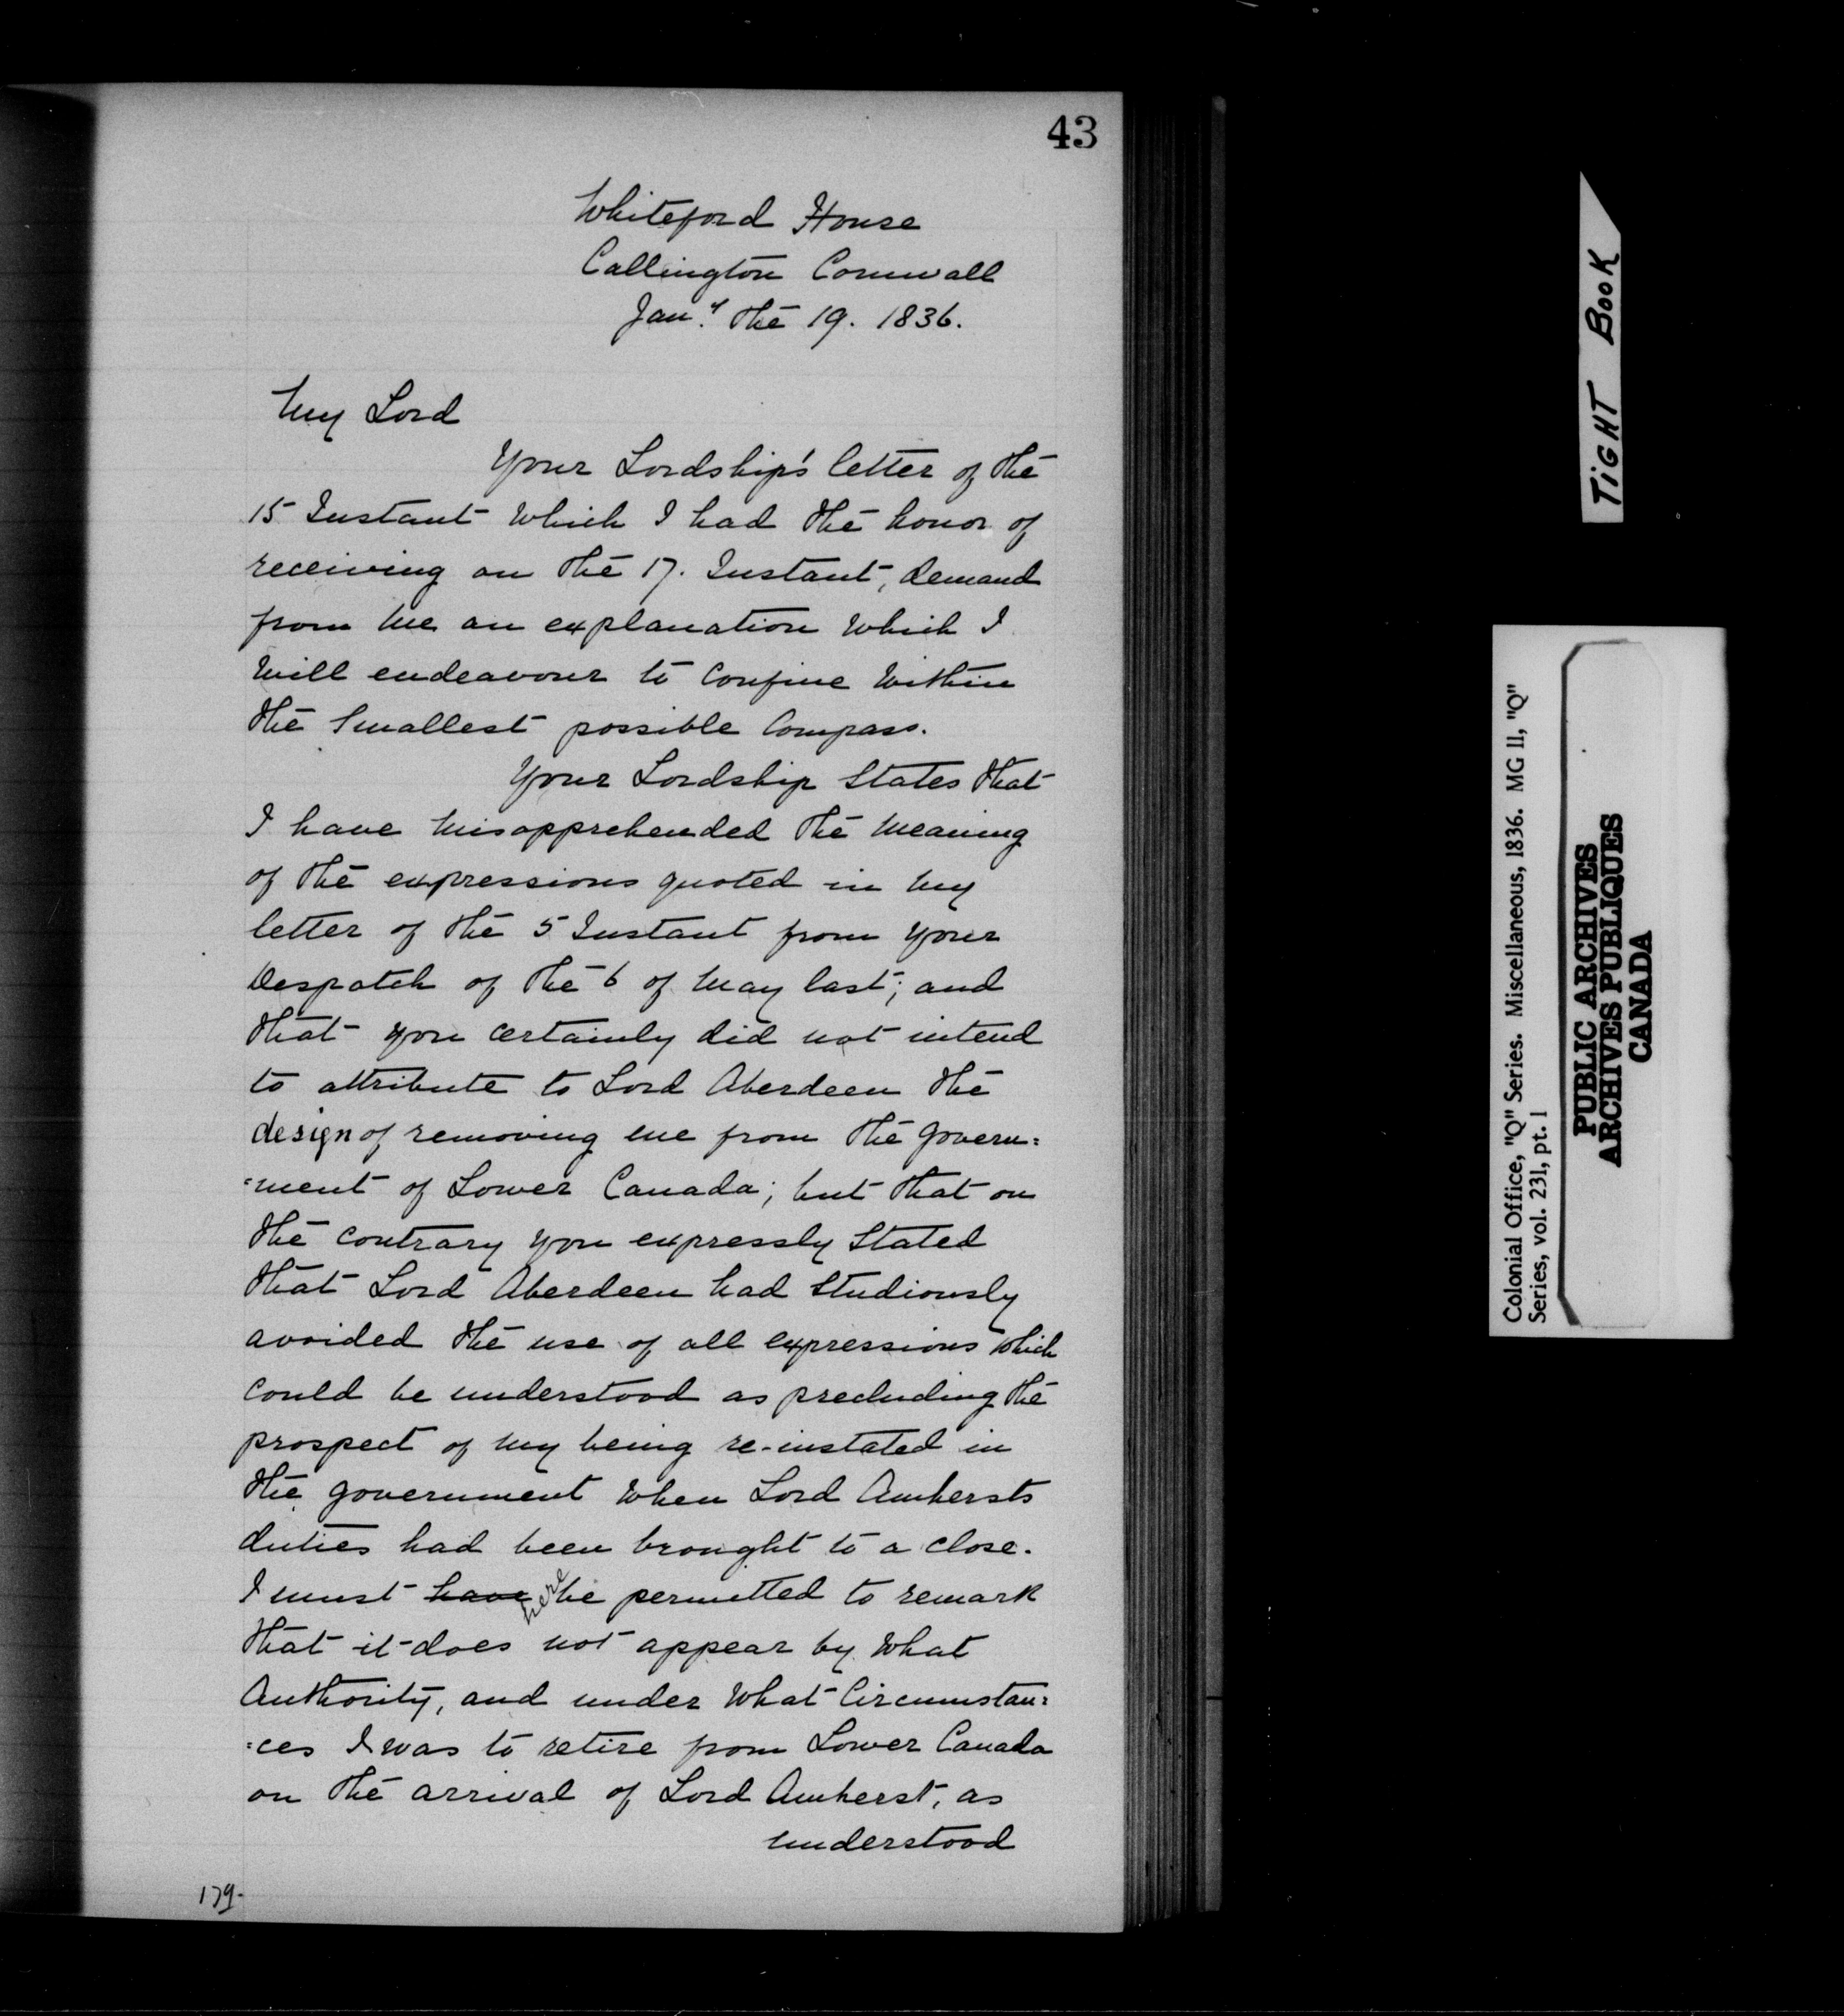 43
Whiteford House
Callington Cornwall
Jan.y the 19. 1836.
My Lord
Your Lordship's letter of the
15 Instant which I had the honor of
receiving on the 17. Instant, demand
from me an explanation which I
will endeavour to confine within
the smallest possible compass.
Your Lordship states that
I have misapprehended the meaning
of the expressions quoted in my
letter of the 5 Instant from your
Despatch of the 6 of May last; and
that you certainly did not intend
to attribute to Lord Aberdeen the
design of removing me from the Govern=
=ment of Lower Canada; but that on
the contrary you expressly stated
that Lord Aberdeen had studiously
avoided the use of all expressions which
could be understood as precluding the
prospect of my being re-instated in
the government when Lord Amhersts
duties had been brought to a close.
I must have here be permitted to remark
that it does not appear by what
Authority, and under what Circumstan=
=ces I was to retire from Lower Canada
on the arrival of Lord Amherst, as
understood
179.
TIGHT BOOK
Colonial Office, "Q" Series. Miscellaneous, 1836. MG 11, "Q"
Series, vol. 231, pt. 1
PUBLIC ARCHIVES
ARCHIVES PUBLIQUES
CANADA